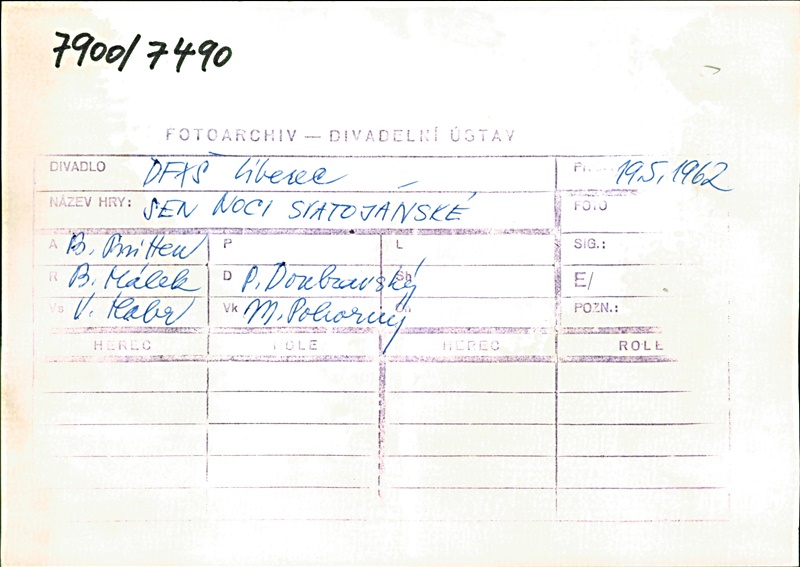 7900/7490
FOTOARCHIV — DIVADELNÍ ÚSTAV
DIVADLO DFXŠ Liberec 19.5.1962
NÁZEV HRY: SEN NOCI SVATOJÁNSKÉ FOTO
A B. Britten P L SIG.:
R B. Málek D P. Doubravský Sh E/
Vs V. Vk M. Pokorný POZN.:
HEREC ROLE HEREC ROLE